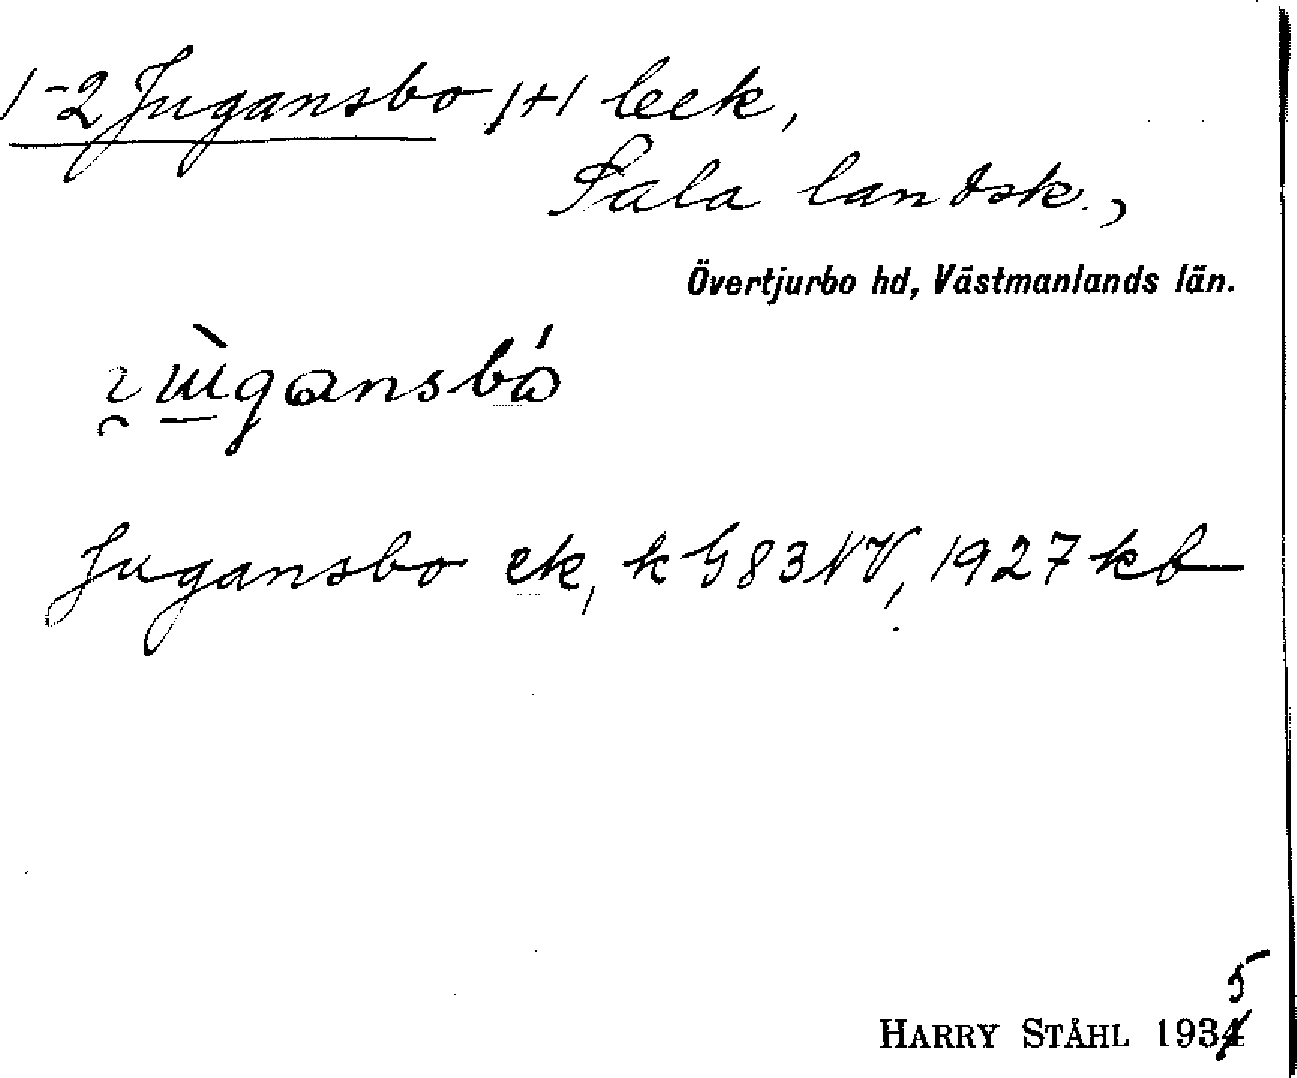 1-2 Jugansbo 1+1 beek,
Sala landsk.,
Övertjurbo hd, Västmanlands län.
Jugansbo ek, k G83NV, 1927 kb
HARRY STÅHL 1935